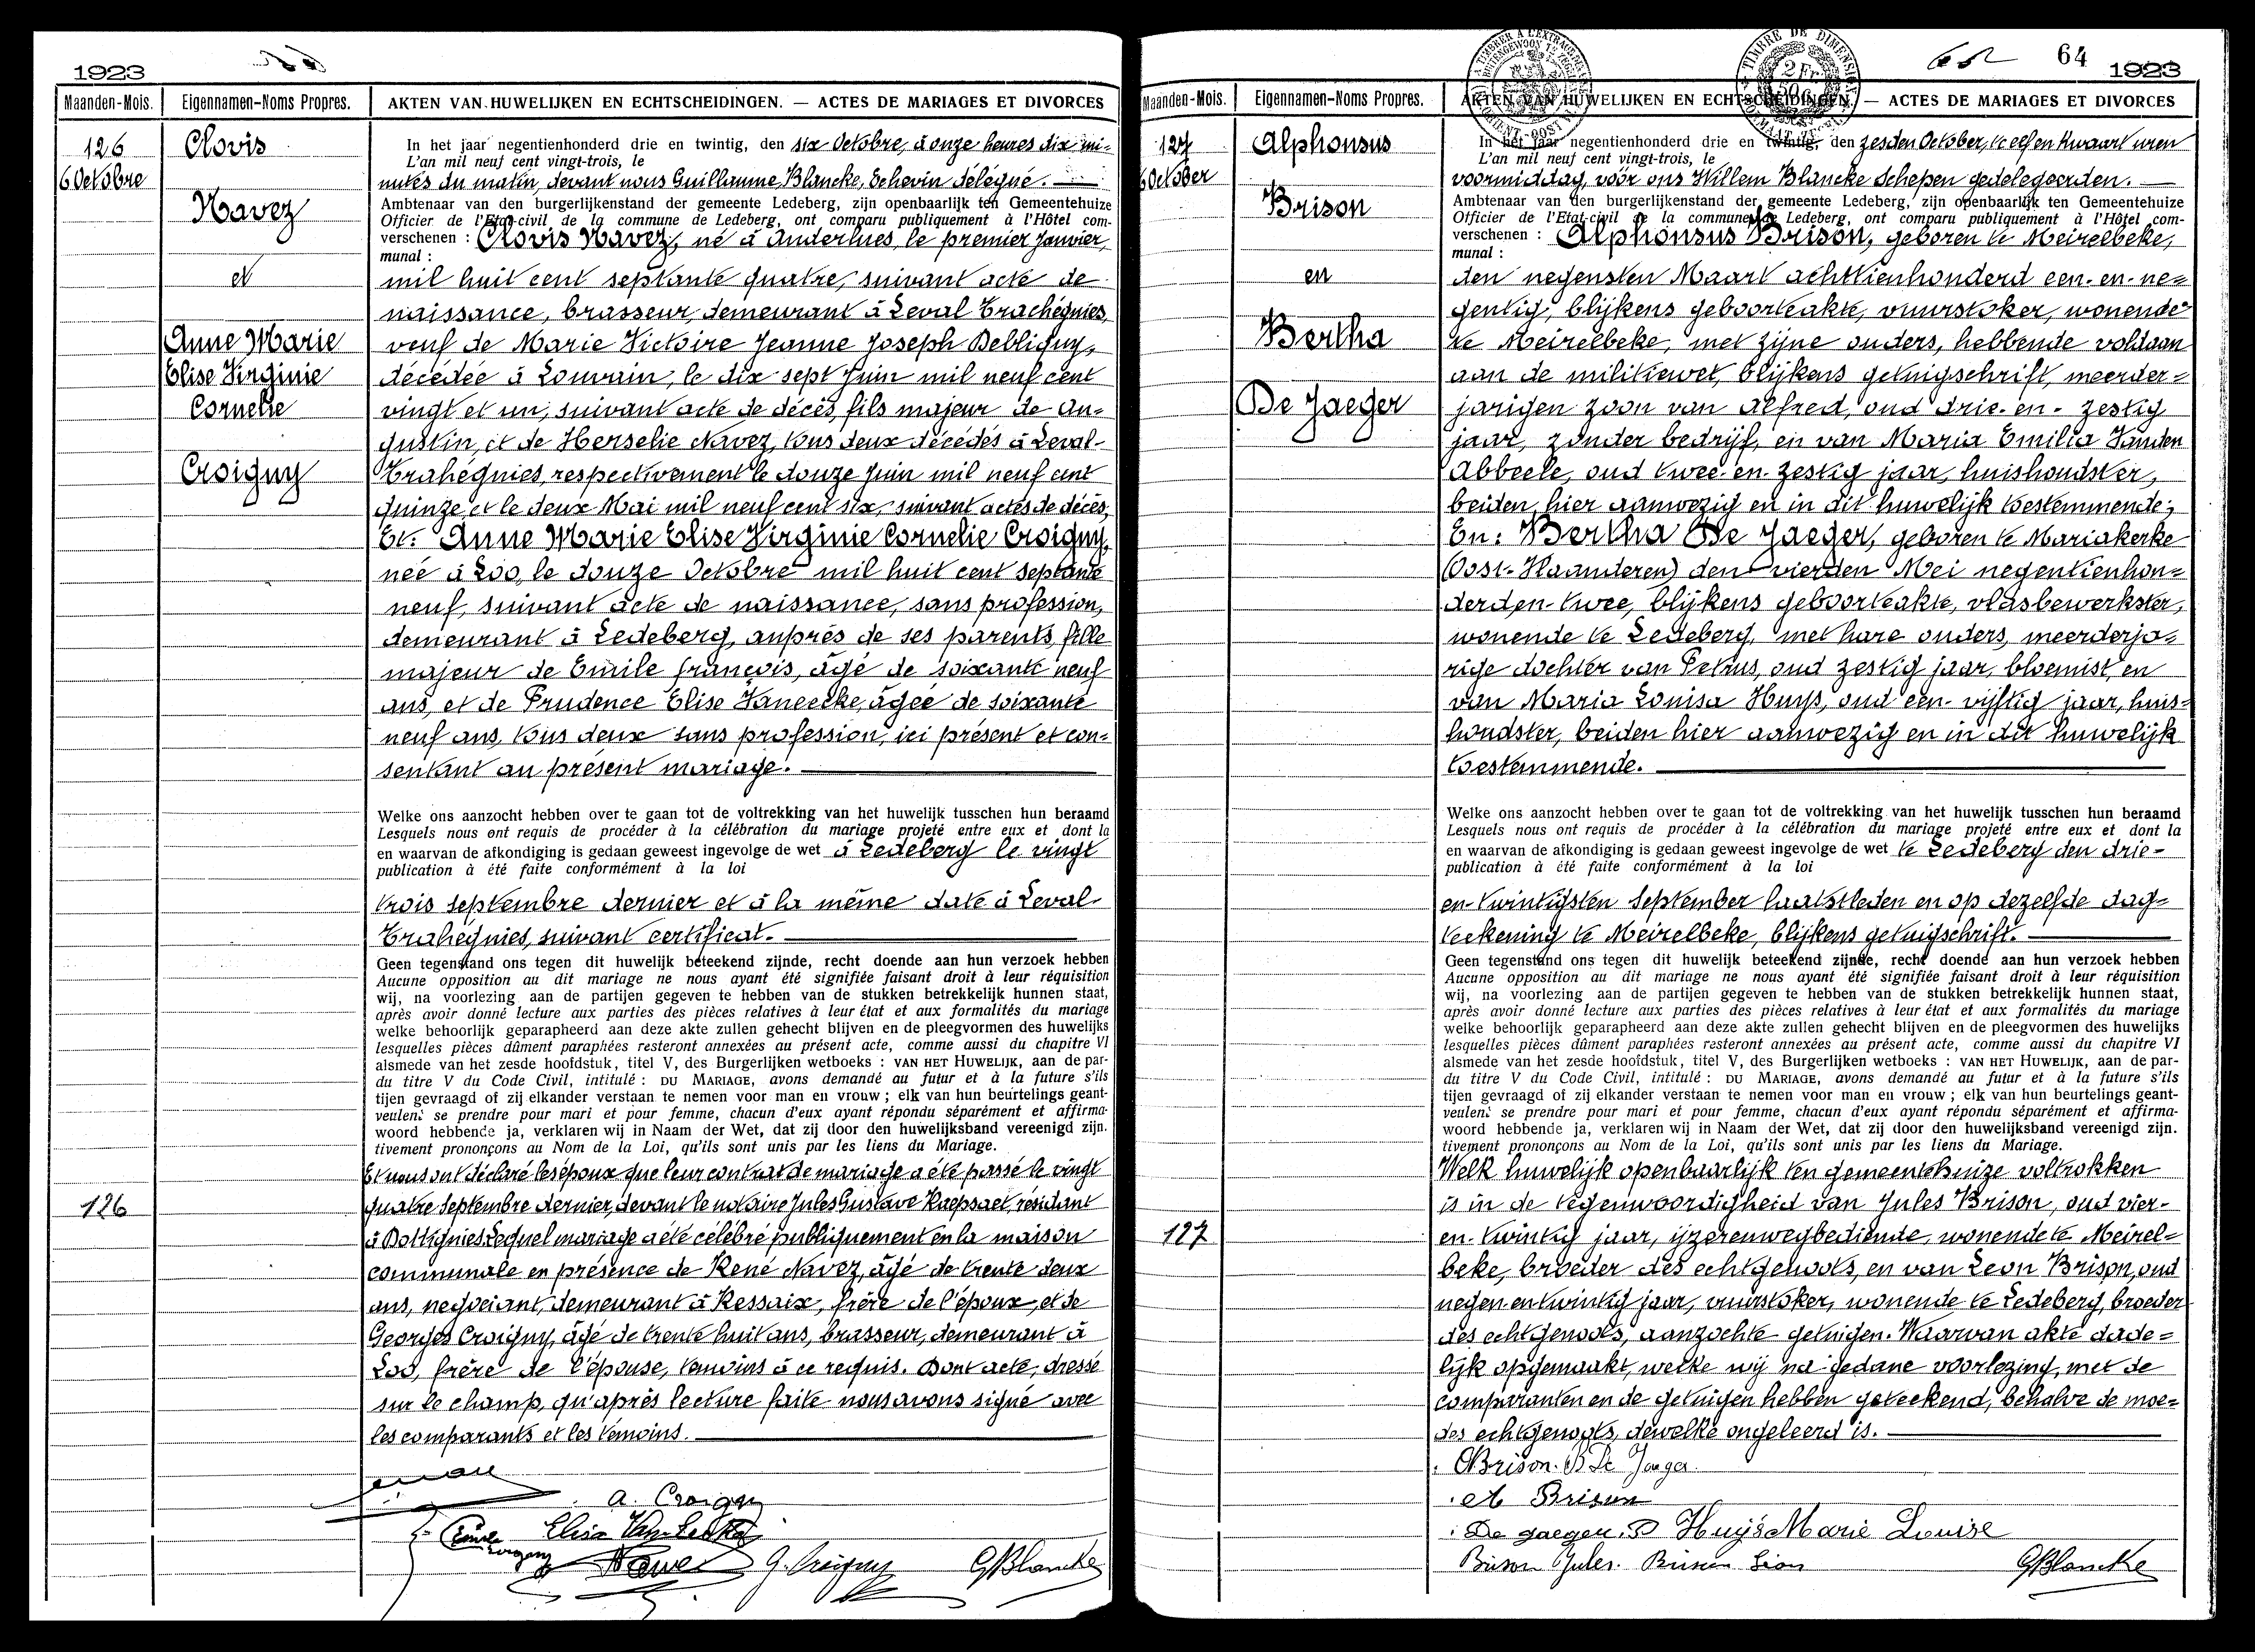 1923
Maanden-Mois. Eigennamen-Noms Propres. AKTEN VAN HUWELIJKEN EN ECHTSCHEIDINGEN. — ACTES DE MARIAGES ET DIVORCES
126
6 Octobre
Clovis
Navez
et
Anne Marie
Elise Virginie
Cornelie
Croigny
In het jaar negentienhonderd drie en twintig, den six Octobre, à onze heures dix mi-
L'an mil neuf cent vingt-trois, le
nutes du matin, devant nous Guillaume Blancke, Echevin délégué. —
Ambtenaar van den burgerlijkenstand der gemeente Ledeberg, zijn openbaarlijk ten Gemeentehuize
Officier de l'Etat-civil de la commune de Ledeberg, ont comparu publiquement à l'Hôtel com-
verschenen : Clovis Navez, né à Anderlues, le premier Janvier,
munal :
mil huit cent septante quatre, suivant acte de
naissance, brasseur, demeurant à Leval Trachégnies,
veuf de Marie Victoire Jeanne Joseph Debligny,
décédée à Louvain, le dix sept Juin mil neuf cent
vingt et un, suivant acte de décès, fils majeur de Au-
gustin, et de Herselie Navez, tous deux décédés à Leval-
Trahégnies, respectivement le douze Juin mil neuf cent
quinze et le deux Mai mil neuf cent six, suivant actes de décès;
Et: Anne Marie Elise Virginie Cornelie Croigny,
née à Loo, le douze Octobre mil huit cent septante
neuf, suivant acte de naissance, sans profession,
demeurant à Ledeberg, auprès de ses parents, fille
majeur de Emile françois, âgé de soixante neuf
ans, et de Prudence Elise Vaneecke, âgée de soixante
neuf ans, tous deux sans profession, ici présent et con-
sentant au présent mariage. —
Welke ons aanzocht hebben over te gaan tot de voltrekking van het huwelijk tusschen hun beraamd
Lesquels nous ont requis de procéder à la célébration du mariage projeté entre eux et dont la
en waarvan de afkondiging is gedaan geweest ingevolge de wet à Ledeberg le vingt
publication à été faite conformément à la loi
trois septembre dernier et à la même date à Leval-
Trahégnies, suivant certificat. —
Geen tegenstand ons tegen dit huwelijk beteekend zijnde, recht doende aan hun verzoek hebben
Aucune opposition au dit mariage ne nous ayant été signifiée faisant droit à leur réquisition
wij, na voorlezing aan de partijen gegeven te hebben van de stukken betrekkelijk hunnen staat,
après avoir donné lecture aux parties des pièces relatives à leur état et aux formalités du mariage
welke behoorlijk geparapheerd aan deze akte zullen gehecht blijven en de pleegvormen des huwelijks
lesquelles pièces dûment paraphées resteront annexées au présent acte, comme aussi du chapitre VI
alsmede van het zesde hoofdstuk, titel V, des Burgerlijken wetboeks : VAN HET HUWELIJK, aan de par-
du titre V du Code Civil, intitulé : DU MARIAGE, avons demandé au futur et à la future s'ils
tijen gevraagd of zij elkander verstaan te nemen voor man en vrouw ; elk van hun beurtelings geant-
veulent se prendre pour mari et pour femme, chacun d'eux ayant répondu séparément et affirma-
woord hebbende ja, verklaren wij in Naam der Wet, dat zij door den huwelijksband vereenigd zijn.
tivement prononçons au Nom de la Loi, qu'ils sont unis par les liens du Mariage.
126
Et nous ont déclaré les époux que leur contrat de mariage a été passé le vingt
quatre Septembre dernier, devant le notaire Jules Gustave Raepsaet, résidant
à Dottignies. Lequel mariage a été célébré publiquement en la maison
communale en présence de René Navez, âgé de trente deux
ans, negociant, demeurant à Ressaix, frère de l'époux, et de
Georges Croigny, âgé de trente huit ans, brasseur, demeurant à
Loo, frère de l'épouse, témoins à ce requis. Dont acte, dressé
sur le champ, qu'après lecture faite nous avons signé avec
les comparants et les témoins. —
a. Croigny
G. Croigny GBlancke
64 1923
Maanden-Mois. Eigennamen-Noms Propres. AKTEN VAN HUWELIJKEN EN ECHTSCHEIDINGEN. — ACTES DE MARIAGES ET DIVORCES
127
6 October
Alphonsus
Brison
en
Bertha
De Jaeger
In het jaar negentienhonderd drie en twintig, den zesden October, te elf en kwaart uren
L'an mil neuf cent vingt-trois, le
voormiddag, vóór ons Willem Blancke Schepen gedelegeerden. —
Ambtenaar van den burgerlijkenstand der gemeente Ledeberg, zijn openbaarlijk ten Gemeentehuize
Officier de l'Etat-civil de la commune de Ledeberg, ont comparu publiquement à l'Hôtel com-
verschenen : Alphonsus Brison, geboren te Meirelbeke,
munal :
den negensten Maart achttienhonderd een-en-ne-
gentig, blijkens geboorteakte, vuurstoker, wonende
te Meirelbeke, met zijne ouders, hebbende voldaan
aan de militiewet, blijkens getuigschrift, meerder-
jarigen zoon van Alfred, oud drie-en-zestig
jaar, zonder bedrijf, en van Maria Emilia Vanden
Abbeele, oud twee-en-zestig jaar, huishoudster,
beiden hier aanwezig en in dit huwelijk toestemmende;
En: Bertha De Jaeger, geboren te Mariakerke
(Oost-Vlaanderen) den vierden Mei negentienhon-
derden-twee, blijkens geboorteakte, vlasbewerkster,
wonende te Ledeberg, met hare ouders, meerderja-
rige dochter van Petrus, oud zestig jaar, bloemist, en
van Maria Louisa Huys, oud een-vijftig jaar, huis-
houdster, beiden hier aanwezig en in dit huwelijk
toestemmende. —
Welke ons aanzocht hebben over te gaan tot de voltrekking van het huwelijk tusschen hun beraamd
Lesquels nous ont requis de procéder à la célébration du mariage projeté entre eux et dont la
en waarvan de afkondiging is gedaan geweest ingevolge de wet te Ledeberg den drie-
publication à été faite conformément à la loi
en-twintigsten September laatstleden en op dezelfde dag-
teekening te Meirelbeke, blijkens getuigschrift. —
Geen tegenstand ons tegen dit huwelijk beteekend zijnde, recht doende aan hun verzoek hebben
Aucune opposition au dit mariage ne nous ayant été signifiée faisant droit à leur réquisition
wij, na voorlezing aan de partijen gegeven te hebben van de stukken betrekkelijk hunnen staat,
après avoir donné lecture aux parties des pièces relatives à leur état et aux formalités du mariage
welke behoorlijk geparapheerd aan deze akte zullen gehecht blijven en de pleegvormen des huwelijks
lesquelles pièces dûment paraphées resteront annexées au présent acte, comme aussi du chapitre VI
alsmede van het zesde hoofdstuk, titel V, des Burgerlijken wetboeks : VAN HET HUWELIJK, aan de par-
du titre V du Code Civil, intitulé : DU MARIAGE, avons demandé au futur et à la future s'ils
tijen gevraagd of zij elkander verstaan te nemen voor man en vrouw ; elk van hun beurtelings geant-
veulent se prendre pour mari et pour femme, chacun d'eux ayant répondu séparément et affirma-
woord hebbende ja, verklaren wij in Naam der Wet, dat zij door den huwelijksband vereenigd zijn.
tivement prononçons au Nom de la Loi, qu'ils sont unis par les liens du Mariage.
127
Welk huwelijk openbaarlijk ten gemeentehuize voltrokken
is in de tegenwoordigheid van Jules Brison, oud vier-
en-twintig jaar, ijzerenwegbediende, wonende te Meirel-
beke, broeder des echtgenoots, en van Leon Brison, oud
negen en twintig jaar, vuurstoker, wonende te Ledeberg, broeder
des echtgenoots, aanzochte getuigen. Waarvan akte dade-
lijk opgemaakt, welke wij na gedane voorlezing, met de
comparanten en de getuigen hebben geteekend, behalve de moe-
des echtgenoots, dewelke ongeleerd is. —
Brison. B De Jaeger
A Brison
De Jaeger. P Huys Marie Louise
Brison Jules. Brison Leon GBlancke